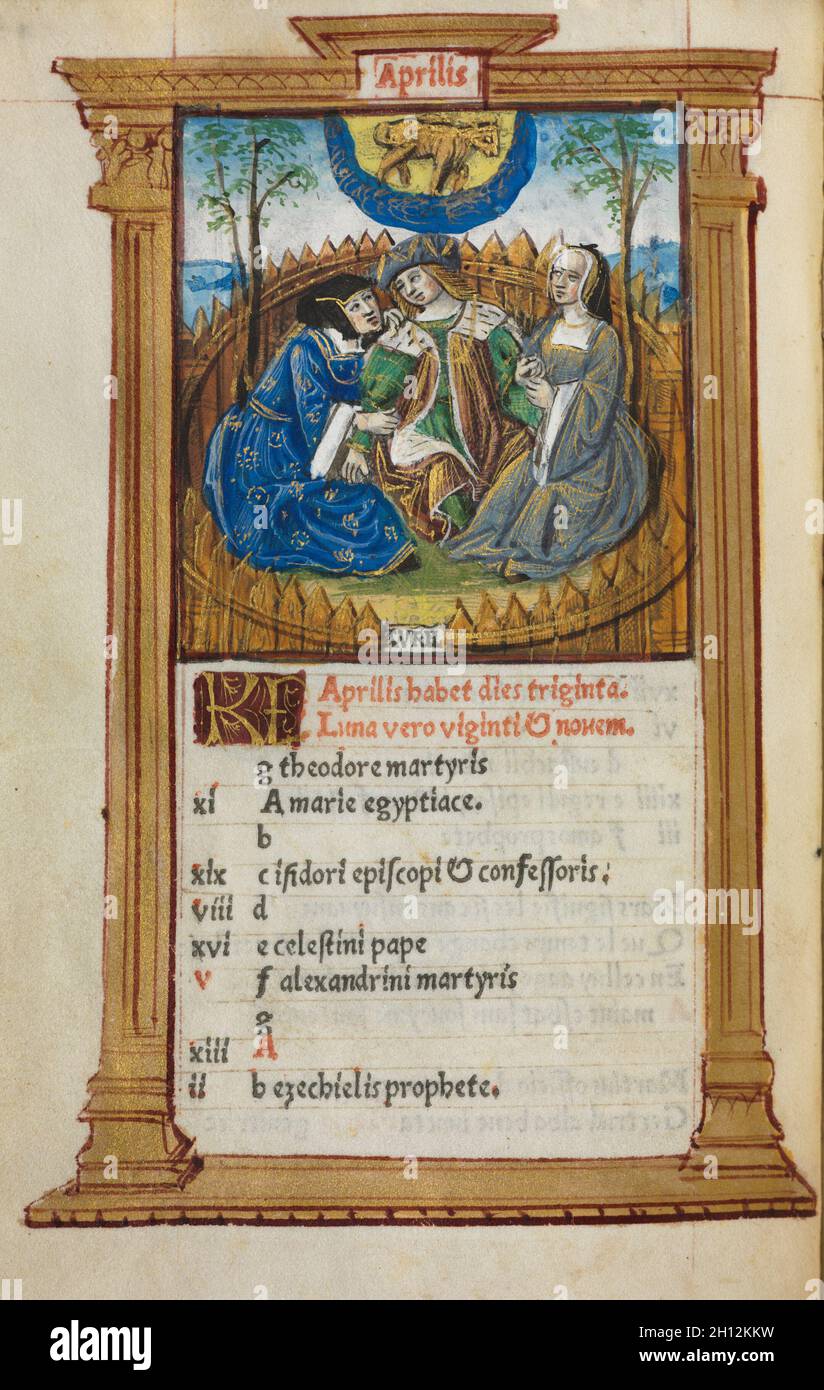 Aprilis
KL
Aprilis habet dies triginta.
Luna vero viginti & novem.
g theodore martyris
xi A marie egyptiace.
b
xix c isidori episcopi & confessoris.
viii d
xvi e celestini pape
v f alexandrini martyris
g
xiii A
ii b ezechielis prophete.
a
alamy
alamy
Image ID: 2H12KKW
www.alamy.com